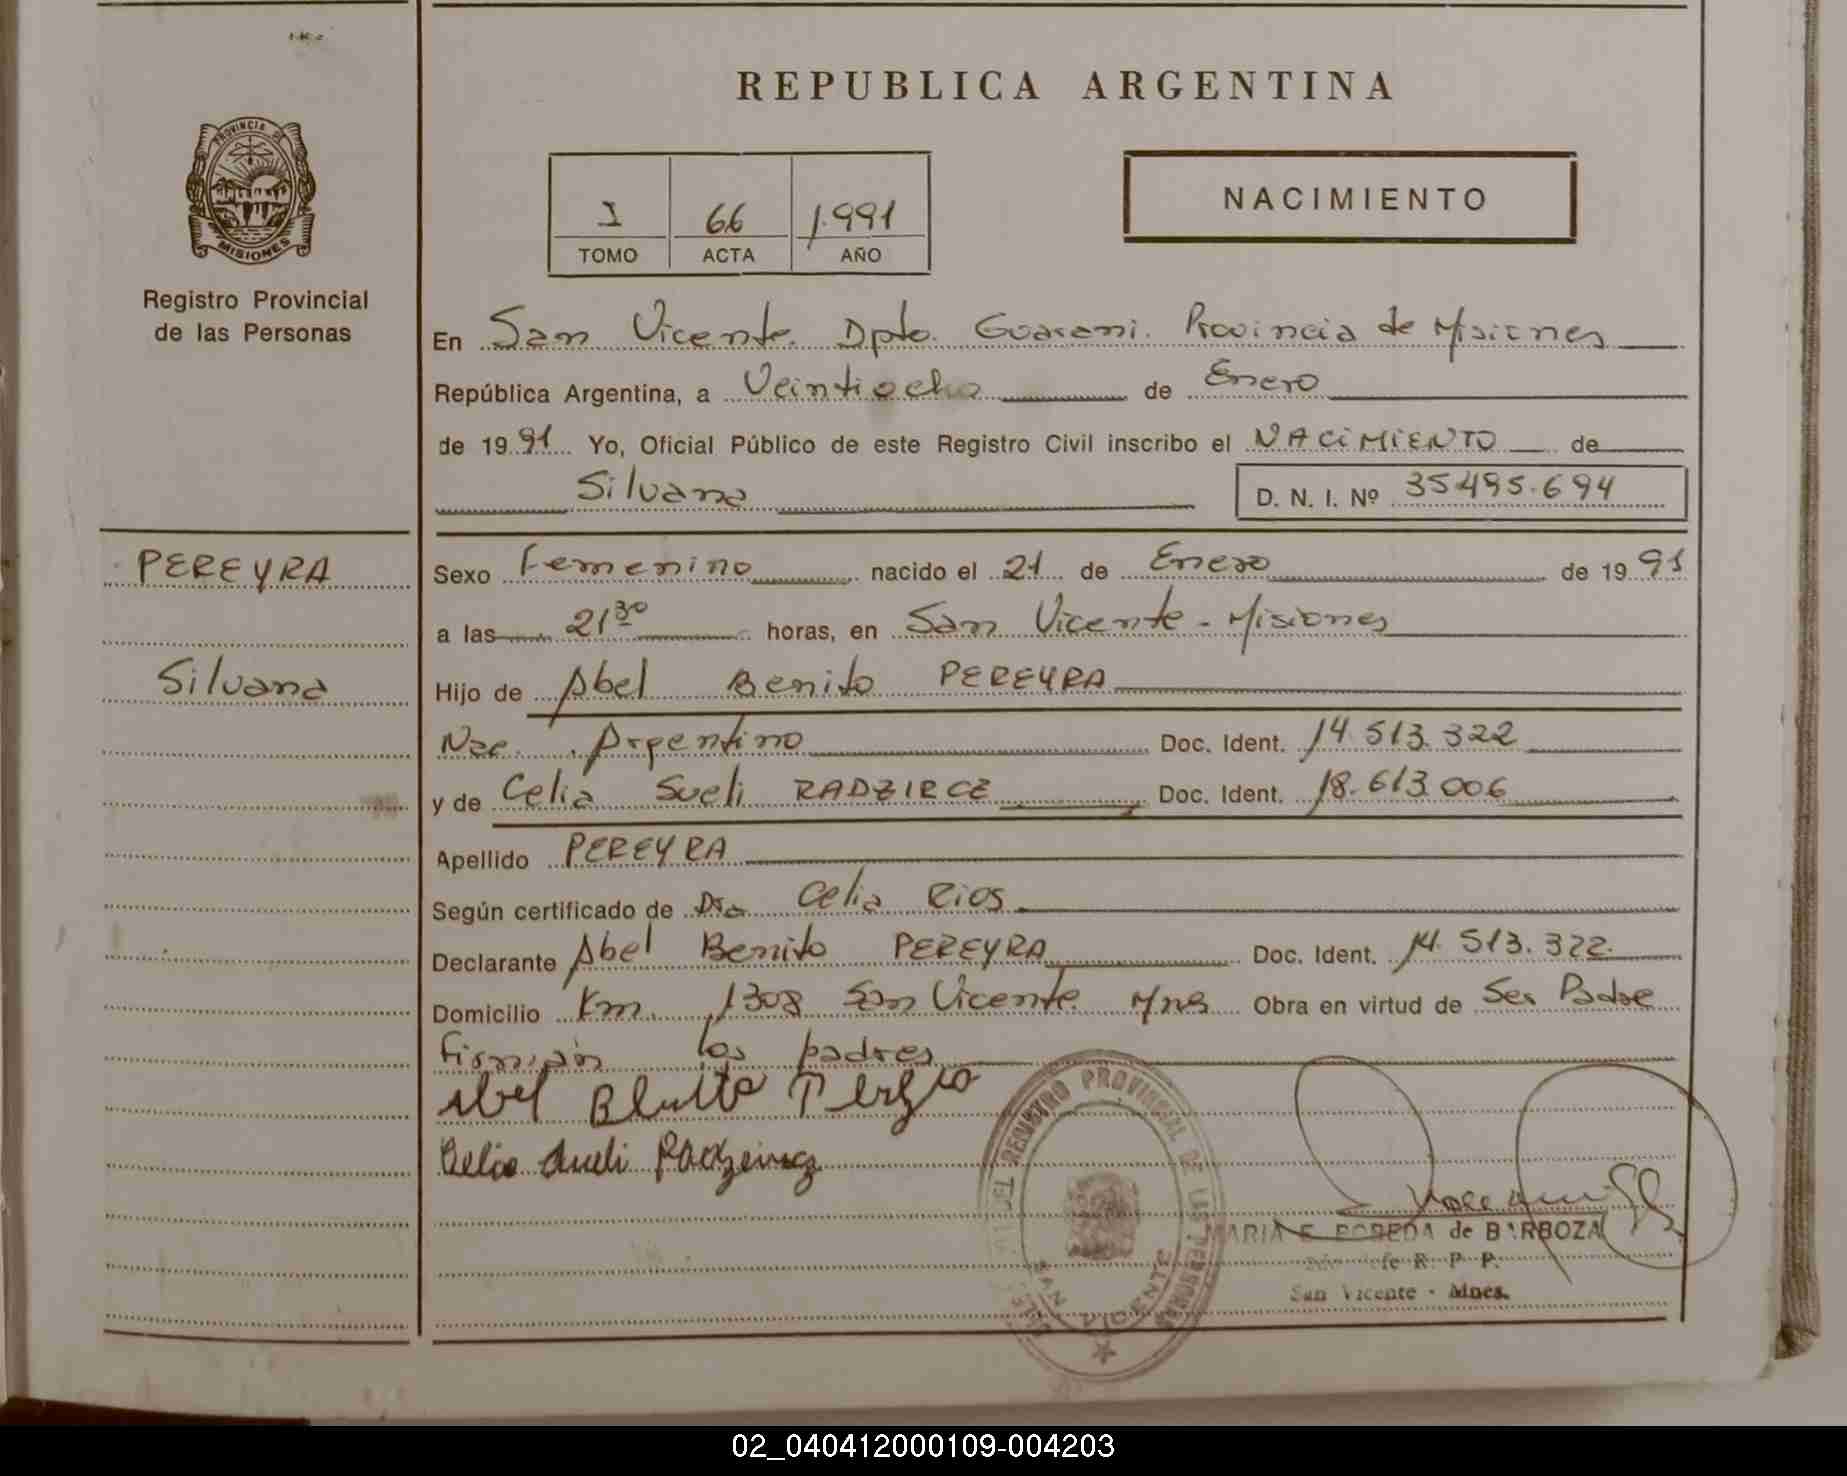 REPUBLICA ARGENTINA
PROVINCIA DE
MISIONES
Registro Provincial
de las Personas
I 66 1.991
TOMO ACTA AÑO
NACIMIENTO
En San Vicente. Dpto. Guarani. Provincia de Misiones
República Argentina, a Veintiocho de Enero
de 1991 Yo, Oficial Público de este Registro Civil inscribo el NACIMIENTO de
Silvana D. N. I. Nº 35.495.694
PEREYRA
Silvana
Sexo Femenino nacido el 21 de Enero de 1991
a las 21 30 horas, en San Vicente - Misiones
Hijo de Abel Benito PEREYRA
Nac. Argentino Doc. Ident. 14.513.322
y de Celia Sueli RADZIRCE Doc. Ident. 18.613.006
Apellido PEREYRA
Según certificado de Dra Celia Rios
Declarante Abel Benito PEREYRA Doc. Ident. 14.513.322
Domicilio Km. 1308 San Vicente Mnes Obra en virtud de Ser Padre
Firman los padres
Abel Benito
Celia Sueli
REGISTRO PROVINCIAL DE LAS PERSONAS
SAN VICENTE
MARIA E. POREDA de BARBOZA
R. P. P.
San Vicente - Mnes.
02_040412000109-004203